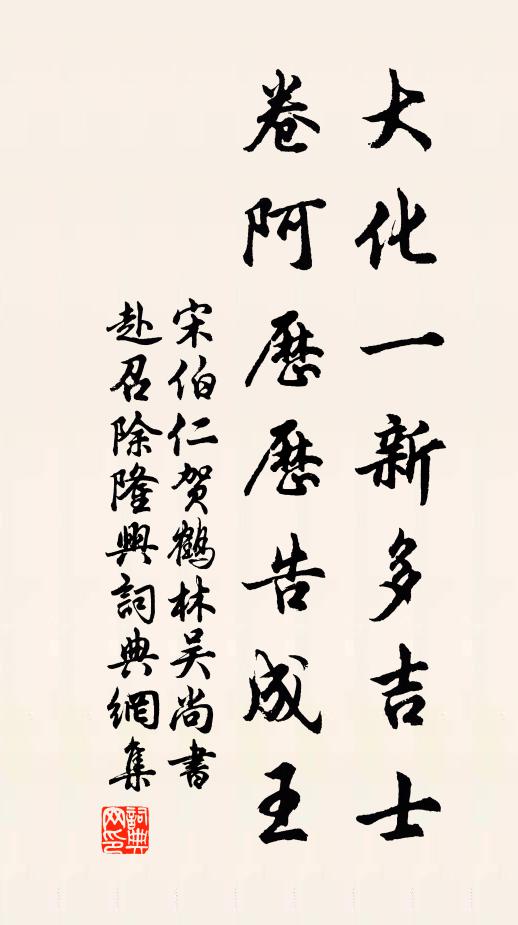 大化一新多吉士
卷阿歷歷告成王
宋伯仁賀鶴林吳尚書
赴召除隆興詞典網集
詞典
网印